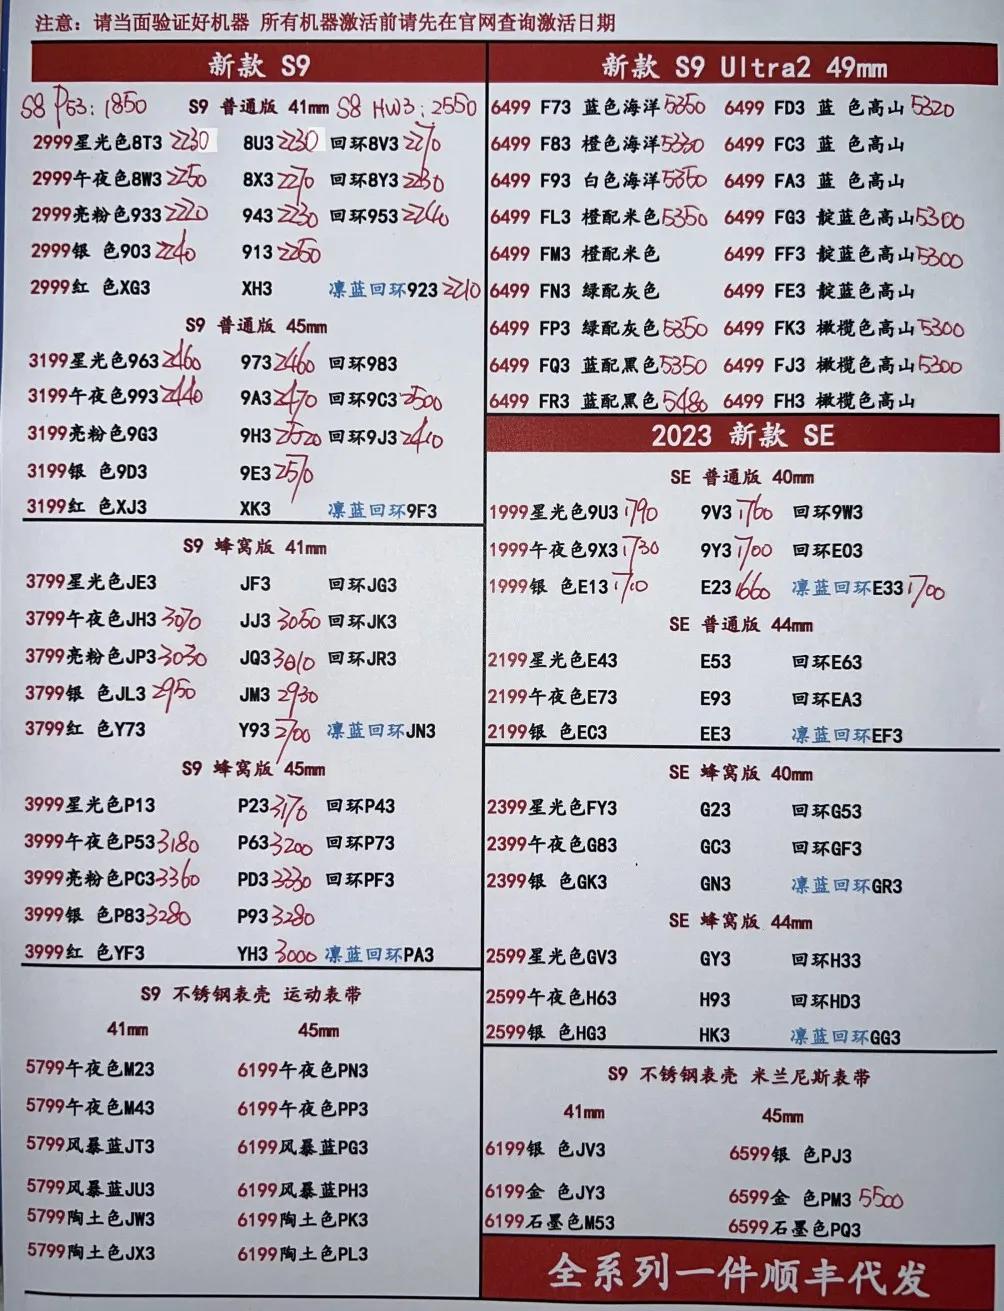 注意: 请当面验证好机器 所有机器激活前请先在官网查询激活日期
新款 S9
S8 P53: 1850 S9 普通版 41mm S8 HW3: 2550
2999星光色8T3 2230 8U3 2230 回环8V3 2270
2999午夜色8W3 2250 8X3 2270 回环8Y3 2230
2999亮粉色933 2220 943 2230 回环953 2240
2999银 色903 2240 913 2250
2999红 色XG3 XH3 凛蓝回环923 2210
S9 普通版 45mm
3199星光色963 2460 973 2460 回环983
3199午夜色993 2440 9A3 2470 回环9C3 2500
3199亮粉色9G3 9H3 2520 回环9J3 2410
3199银 色9D3 9E3 2570
3199红 色XJ3 XK3 凛蓝回环9F3
S9 蜂窝版 41mm
3799星光色JE3 JF3 回环JG3
3799午夜色JH3 3070 JJ3 3050 回环JK3
3799亮粉色JP3 3030 JQ3 3010 回环JR3
3799银 色JL3 2950 JM3 2930
3799红 色Y73 Y93 2700 凛蓝回环JN3
S9 蜂窝版 45mm
3999星光色P13 P23 3170 回环P43
3999午夜色P53 3180 P63 3200 回环P73
3999亮粉色PC3 3360 PD3 3330 回环PF3
3999银 色P83 3280 P93 3280
3999红 色YF3 YH3 3000 凛蓝回环PA3
S9 不锈钢表壳 运动表带
41mm 45mm
5799午夜色M23 6199午夜色PN3
5799午夜色M43 6199午夜色PP3
5799风暴蓝JT3 6199风暴蓝PG3
5799风暴蓝JU3 6199风暴蓝PH3
5799陶土色JW3 6199陶土色PK3
5799陶土色JX3 6199陶土色PL3
新款 S9 Ultra2 49mm
6499 F73 蓝色海洋 5350 6499 FD3 蓝 色高山 5320
6499 F83 橙色海洋 5330 6499 FC3 蓝 色高山
6499 F93 白色海洋 5350 6499 FA3 蓝 色高山
6499 FL3 橙配米色 5350 6499 FG3 靛蓝色高山 5300
6499 FM3 橙配米色 6499 FF3 靛蓝色高山 5300
6499 FN3 绿配灰色 6499 FE3 靛蓝色高山
6499 FP3 绿配灰色 5350 6499 FK3 橄榄色高山 5300
6499 FQ3 蓝配黑色 5350 6499 FJ3 橄榄色高山 5300
6499 FR3 蓝配黑色 5480 6499 FH3 橄榄色高山
2023 新款 SE
SE 普通版 40mm
1999星光色9U3 1790 9V3 1760 回环9W3
1999午夜色9X3 1730 9Y3 1700 回环E03
1999银 色E13 1710 E23 1660 凛蓝回环E33 1700
SE 普通版 44mm
2199星光色E43 E53 回环E63
2199午夜色E73 E93 回环EA3
2199银 色EC3 EE3 凛蓝回环EF3
SE 蜂窝版 40mm
2399星光色FY3 G23 回环G53
2399午夜色G83 GC3 回环GF3
2399银 色GK3 GN3 凛蓝回环GR3
SE 蜂窝版 44mm
2599星光色GV3 GY3 回环H33
2599午夜色H63 H93 回环HD3
2599银 色HG3 HK3 凛蓝回环GG3
S9 不锈钢表壳 米兰尼斯表带
41mm 45mm
6199银 色JV3 6599银 色PJ3
6199金 色JY3 6599金 色PM3 5500
6199石墨色M53 6599石墨色PQ3
全系列一件顺丰代发